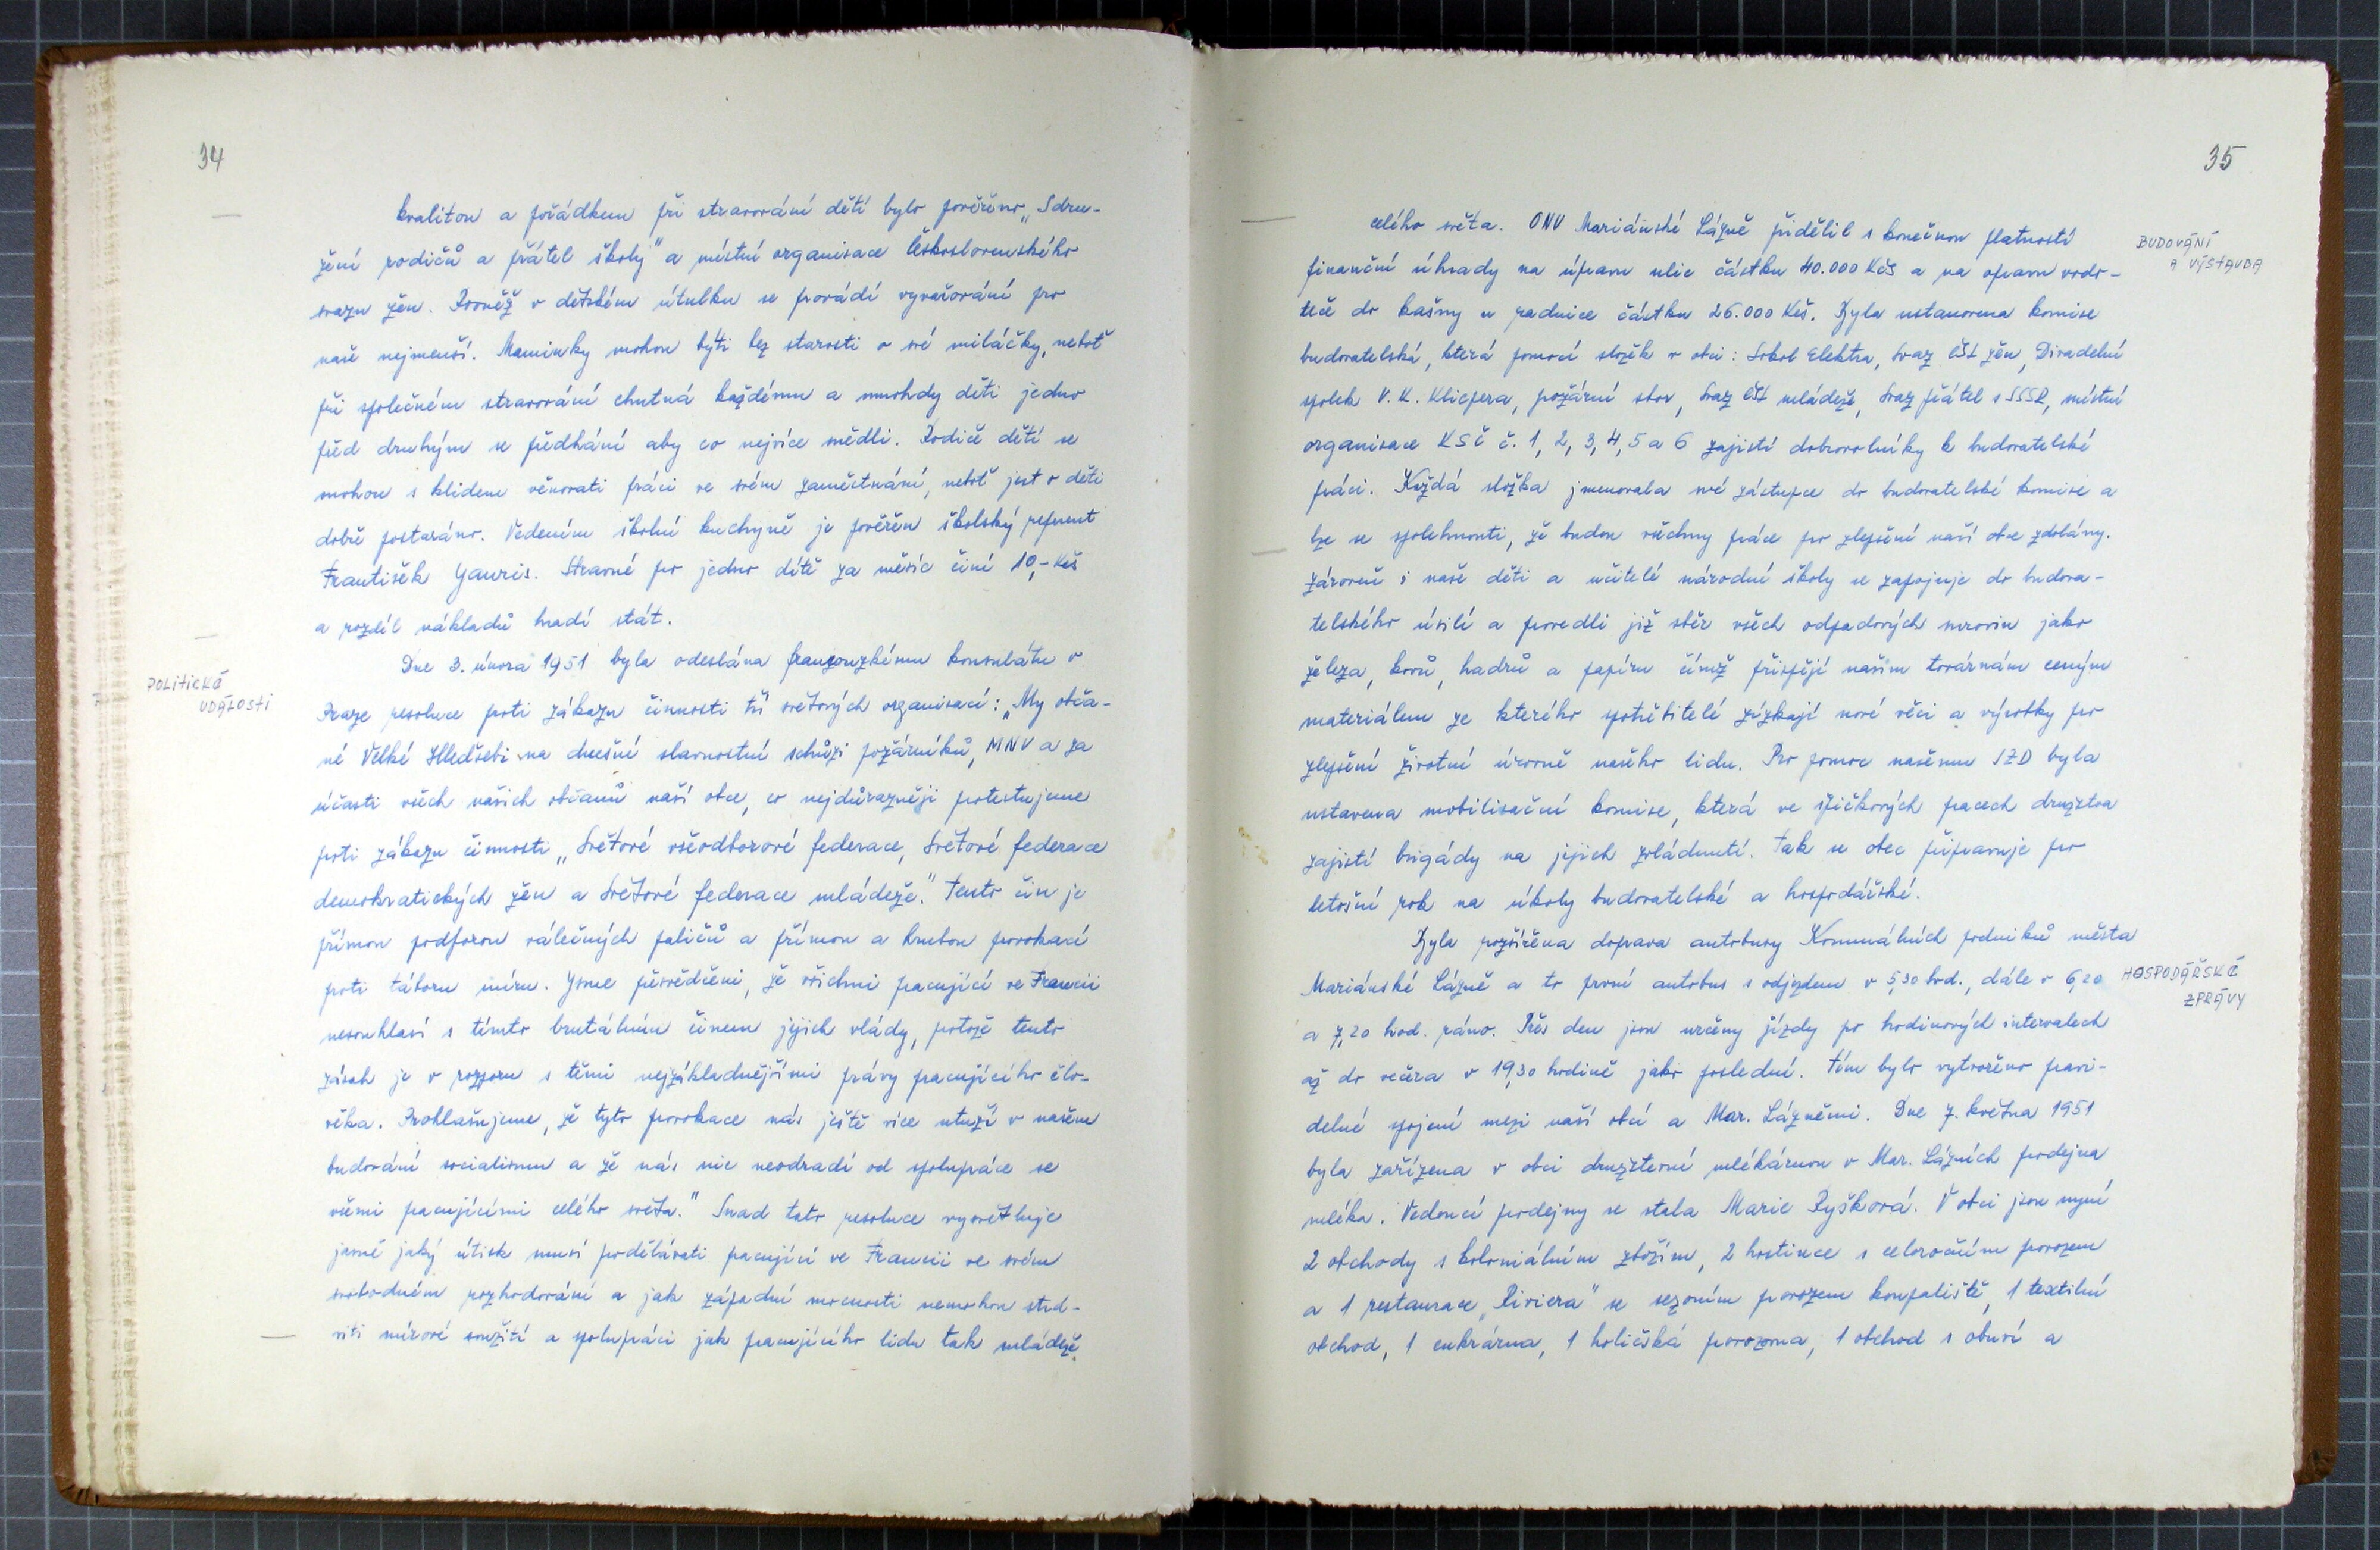 34
kvalitou a pořádkem při stravování dětí bylo pověřeno „Sdru-
žení rodičů a přátel školy" a místní organisace Československého
svazu žen. Rovněž v dětském útulku se provádí vyvařování pro
naše nejmenší. Maminky mohou býti bez starosti o své miláčky, neboť
při společném stravování chutná každému a mnohdy děti jedno
před druhým se předhání aby co nejvíce snědli. Rodiče dětí se
mohou s klidem věnovati práci ve svém zaměstnání, neboť jest o děti
dobře postaráno. Vedením školní kuchyně je pověřen školský referent
František Gauris. Stravné pro jedno dítě za měsíc činí 10,- Kčs
a rozdíl nákladů hradí stát.
POLITICKÉ
UDÁLOSTI
Dne 3. února 1951 byla odeslána franzouzkému konsulátu v
Praze resoluce proti zákazu činnosti tří světových organisací: „My obča-
né Velké Hleďsebi na dnešní slavnostní schůzi požárníků, MNV a za
účasti všech našich občanů naší obce, co nejdůrazněji protestujeme
proti zákazu činnosti „Světové všeodborové federace, Světové federace
demokratických žen a Světové federace mládeže." Tento čin je
přímou podporou válečných paličů a přímou a hrubou provokací
proti táboru míru. Jsme přesvědčeni, že všichni pracující ve Francii
nesouhlasí s tímto brutálním činem jejich vlády, protože tento
zásah je v rozporu s těmi nejzákladnějšími právy pracujícího člo-
věka. Prohlašujeme, že tyto provokace nás ještě více utuží v našem
budování socialismu a že nás nic neodradí od spolupráce se
všemi pracujícími celého světa." Snad tato resoluce vysvětluje
jasně jaký útisk musí podělávati pracující ve Francii ve svém
svobodném rozhodování a jak západní mocnosti nemohou stvá-
viti mírové soužití a spolupráci jak pracujícího lidu tak mládeže
35
celého světa. ONV Mariánské Lázně přidělil s konečnou platností
BUDOVÁNÍ
A VÝSTAVBA
finanční úhrady na úpravu ulic částku 40.000 Kčs a na opravu vodo-
teče do kašny u radnice částku 26.000 Kčs. Byla ustanovena komise
budovatelská, která pomocí složek v obci: Sokol Elektra, Svaz čsl žen, Divadelní
spolek V. K. Klicpera, požární sbor, Svaz čsl mládeže, Svaz přátel s SSSR, místní
organisace KSČ č. 1, 2, 3, 4, 5 a 6 zajistí dobrovolníky k budovatelské
práci. Každá složka jmenovala své zástupce do budovatelské komise a
lze se spolehnouti, že budou všechny práce pro zlepšení naší obce zdolány.
Zároveň i naše děti a učitelé národní školy se zapojuje do budova-
telského úsilí a provedli již sběr všech odpadových surovin jako
železa, kovů, hadrů a papíru čímž přispějí našim továrnám cenným
materiálem ze kterého spotřebitelé získají nové věci a výrobky pro
zlepšení životní úrovně našeho lidu. Pro pomoc našemu JZD byla
ustavena mobilisační komise, která ve špičkových pracech družstva
zajistí brigády na jejich zvládnutí. Tak se obec připravuje pro
letošní rok na úkoly budovatelské a hospodářské.
Byla rozšířena doprava autobusy Komunálních podniků města
Mariánské Lázně a to první autobus s odjezdem v 5,30 hod., dále v 6,20
HOSPODÁŘSKÉ
ZPRÁVY
a 7,20 hod. ráno. Přes den jsou určeny jízdy po hodinových intervalech
až do večera v 19,30 hodině jako poslední. Tím bylo vytvořeno pravi-
delné spojení mezi naší obcí a Mar. Lázněmi. Dne 7. května 1951
byla zařízena v obci družstevní mlékárnou v Mar. Lázních prodejna
mléka. Vedoucí prodejny se stala Marie Ryšková. V obci jsou nyní
2 obchody s koloniálním zbožím, 2 hostince s celoročním provozem
a 1 restaurace „Riviera" se sezoním provozem koupaliště, 1 textilní
obchod, 1 cukrárna, 1 holičská provozovna, 1 obchod s obuví a